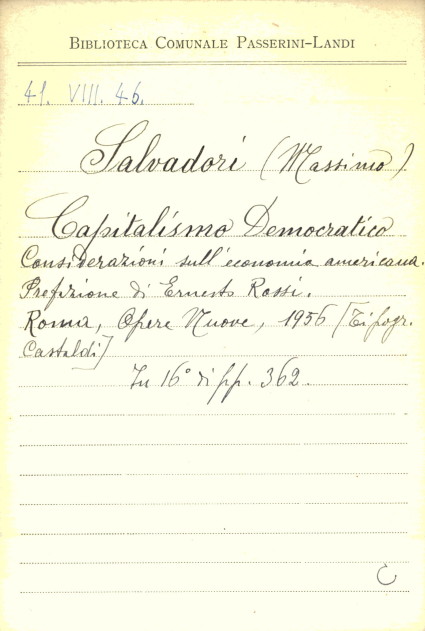 BIBLIOTECA COMUNALE PASSERINI-LANDI
41. VIII. 46.
Salvadori (Massimo)
Capitalismo Democratico
Considerazioni sull'economia americana.
Prefazione di Ernesto Rossi.
Roma, Opere Nuove, 1956 [Tipogr.
Castaldi]
In 16° di pp. 362.
C